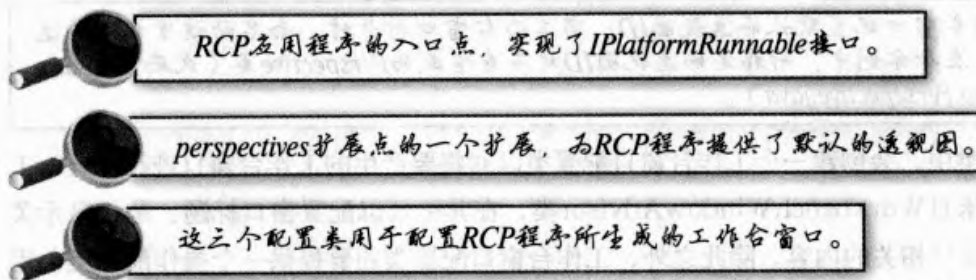 RCP应用程序的入口点，实现了IPlatformRunnable接口。
perspectives扩展点的一个扩展，为RCP程序提供了默认的透视图。
这三个配置类用于配置RCP程序所生成的工作台窗口。